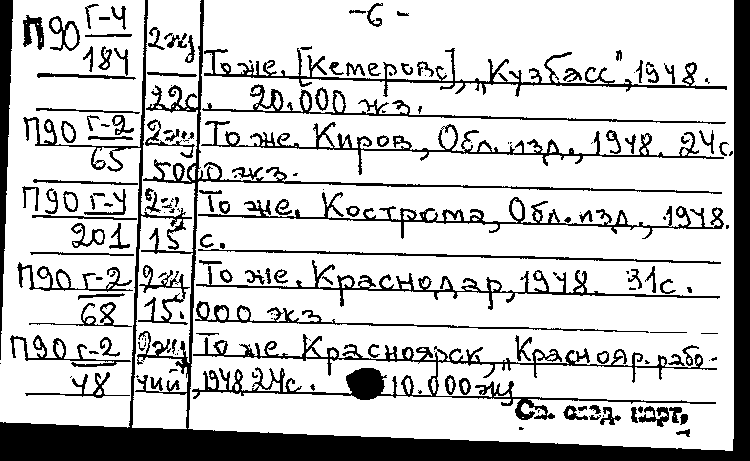 -6-
П90 Г-4 2жу
184 То же. [Кемерово], „Кузбасс", 1948.
22с. 20.000 экз.
П90 Г-2 2жу То же. Киров, Обл. изд., 1948. 24с.
65 5000 экз.
П90 Г-4 То же. Кострома, Обл. изд., 1948.
201 15 с.
П90 Г-2 2жу То же. Краснодар, 1948. 31с.
68 15.000 экз.
П90 Г-2 2жу То же. Красноярск, „Краснояр. рабо-
48 чий", 1948. 24с. 10.000 экз
См. след. карт.